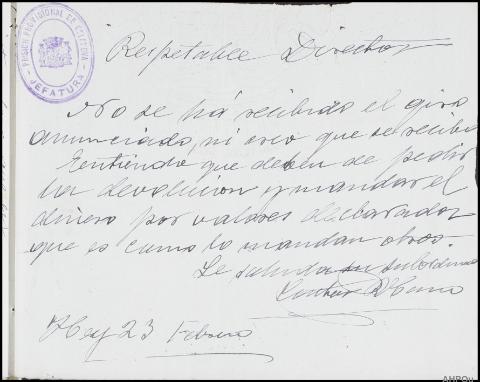 PRISION PROVISIONAL DE
JEFATURA
Respetable Director
No se há recibido el giro
anunciado, ni creo que se reciba
Entiendo que deben de pedir
la devolucion y mandar el
dinero por valores declarados
que es como lo mandan otros.
Le saluda su subordinado
Hoy 23 Febrero
AHPOv